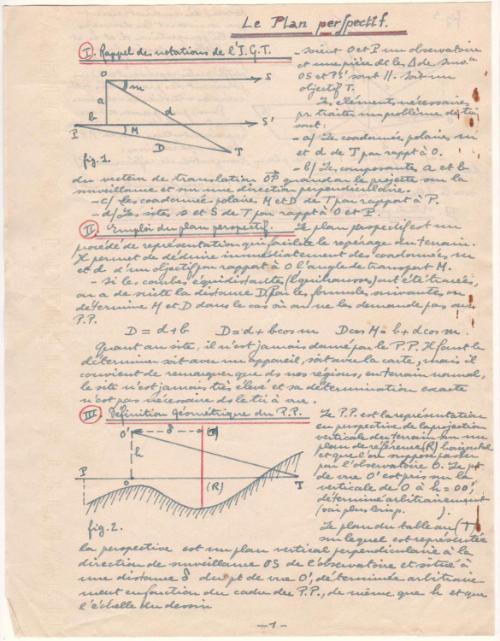 Le Plan perspectif.
I. Rappel des notations de l'I.G.T.
- soient O et P un observatoire
et une pièce et les Δ de
OS et PS' sont //. soit un
objectif T.
Les éléments nécessaires
pr traiter un problème de
sont:
- a/ Les coordonnées polaires m
et d de T par rappt à O.
- b/ Les composantes a et b
O
S
m
a
d
b
P
M
S'
D
T
fig. 1.
du vecteur de translation OP quand on le projette sur la
surveillance et sur une direction perpendiculaire.
- c/ les coordonnées polaires M et D de T par rapport à P.
- d/ Les sites s et S de T par rappt à O et P.
II Emploi du plan perspectif.
Le plan perspectif est un
procédé de représentation qui facilite le repérage en terrain.
Il permet de déduire immédiatement des coordonnées m
et d d'un objectif par rapport à O l'angle de transport M.
- Si les courbes équidistantes ont été tracées,
on a de suite la distance D. Les formules suivantes
détermine M et D dans le cas où on ne les demande pas au
P.P.
D = d + b D = d + b cos m D cos M = b + d cos m
Quant au site, il n'est jamais donné par le P.P. Il faut le
déterminer soit avec un appareil, soit avec la carte, mais il
convient de remarquer que ds nos régions, en terrain normal,
le site n'est jamais très élevé et sa détermination exacte
n'est pas nécessaire ds le tir à vue.
III. Définition géométrique du P.P.
Le P.P. est la représentation
en perspective de la projection
verticale du terrain sur un
plan de référence (R) horizontal
et que l'on suppose passer
par l'observatoire O. Le pt
de vue O' est pris sur la
verticale de O à h = OO',
déterminé arbitrairement
(voir plus loin p. ).
Le plan du tableau (T)
sur lequel est représentée
O'
δ
(T)
P
h
O
(R)
T
fig. 2.
la perspective est un plan vertical perpendiculaire à la
direction de surveillance OS de l'observatoire et situé à
une distance δ du pt de vue O', déterminée arbitraire
ment en fonction du cadre du P.P., de même que h et que
l'échelle du dessin
- 1 -